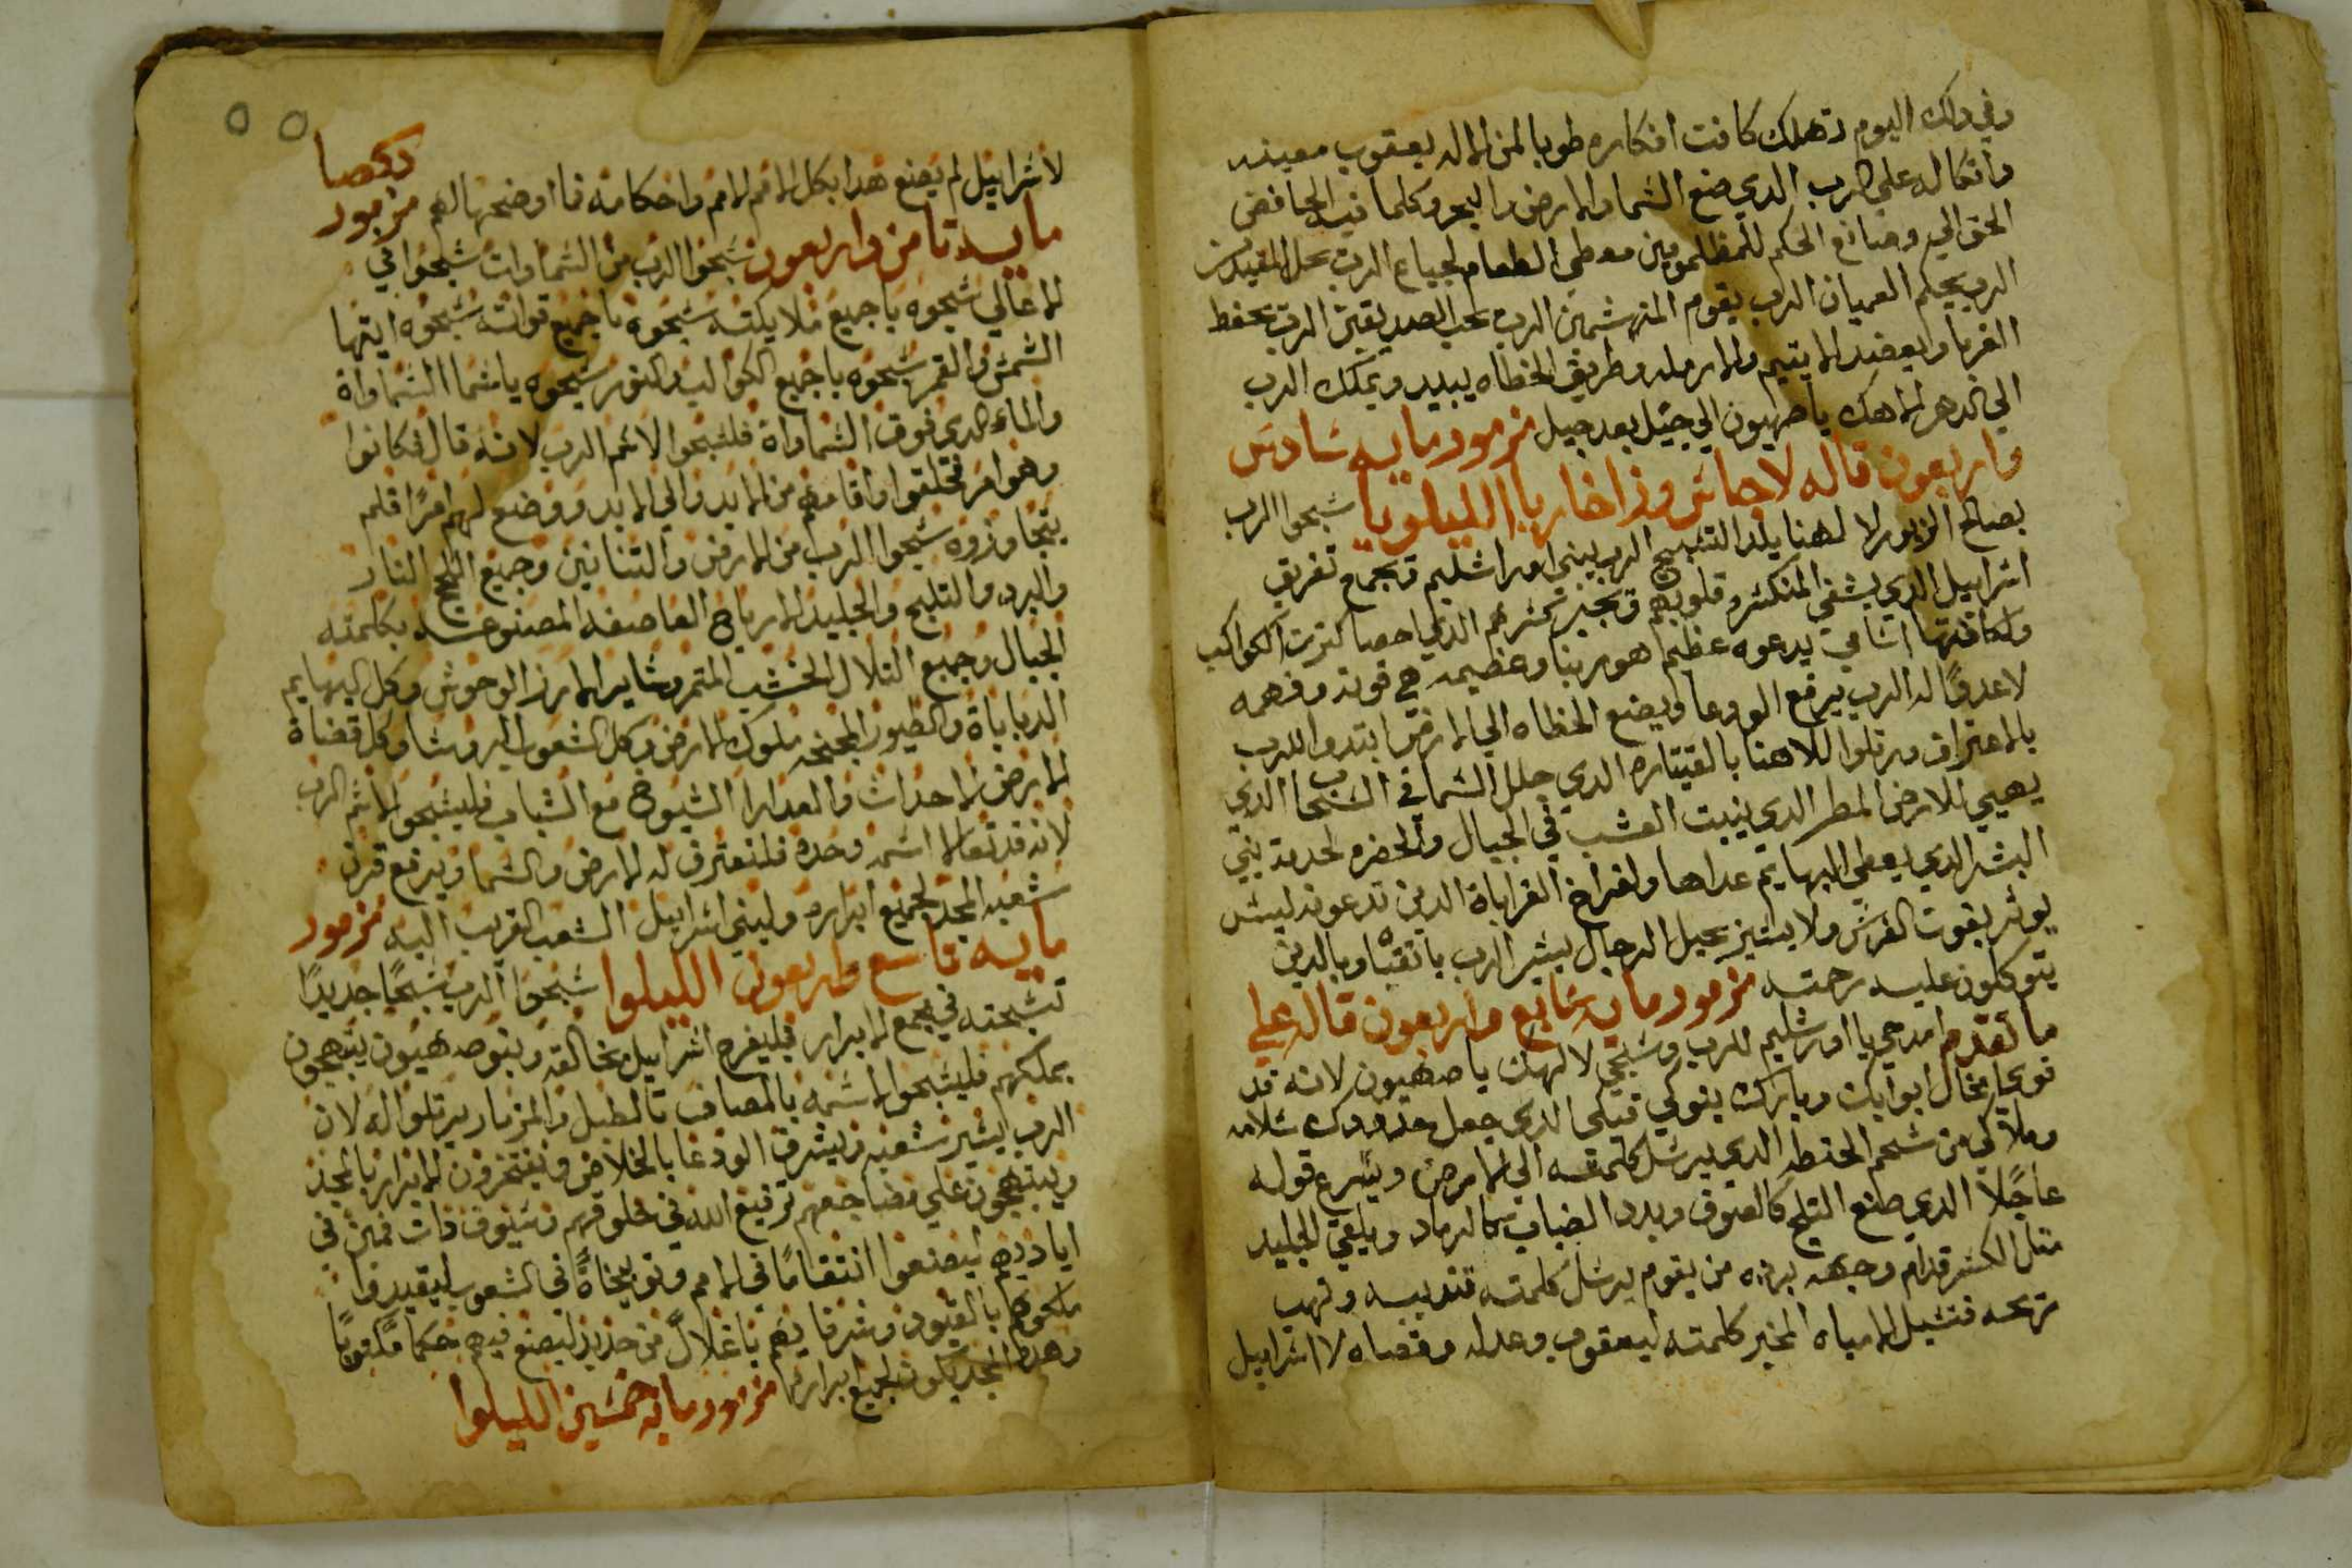 وفي دلك اليوم تهلك كافت افكاره طوبا لمن الاله يعقوب معينه
واتكاله علي الرب الدي صنع السما والارض والبحر وكلما فيه الحافض
الحق الي وصانع الحكم للمظلومين معطي الطعام لجياع الرب يحل المقيدين
الرب يحكم العميان الرب يقوم المنهشمين الرب يحب الصديقين الرب يحفظ
الغربا ويعضد الايتيم والارمله وطريق الخطاه يبيد ويملك الرب
الي الدهر الاهك ياصهيون الي جيل بعد جيل مزمور مايه سادس
واربعون قاله لاجاس وزاخاريا الليلويا سبحوا الرب
بصالح الزبور لا لهنا يلد التسبيح الرب يبني اورشليم ويجمع تفريق
اسراييل الدي يشفي المنكسره قلوبهم ويجبر كسرهم الدي احصا كترت الكواكب
ولكافتها اسامي يدعوه عظيم هو ربنا وعظيمه هي قوته وفهمه
لاعدوًا له الرب يرفع الودعا ويضع الخطاه الي الارض ابتدوا للرب
بالاعتراف ورتلوا للاهنا بالقيتاره الدي جلل السما في السحاب الدي
يهيي للارض المطر الدي ينبت العشب في الجبال والخضره لخدمة بني
البشر الدي يعطي البهايم غداها ولفراخ الغراباة الدين تدعونه ليس
يوثر بقوت الفرس ولا يسير بحيل الرجال يسر الرب باتقياه وبالدين
يتوكلون عليه رحمته مزمور مايه سابع واربعون قاله علي
ما تقدم امدحي يا اورشليم للرب وسبحي لالهك ياصهيون لانه قد
قوي امخال ابوابك وبارك بنوكي فيكي الدي جعل حدودك سلامه
وملاكي من شحم الحنطه الدي يرسل كلمته الي الارض ويسرع قوله
عاجلاً الدي صنع التلج كالصوف وبدد الضباب كالرماد ويلقي الجليد
متل الكسر قدام وجهه برده من يقوم يرسل كلمته فتديبه وتهب
ريحه فتسيل الامياه المخبر كلمته ليعقوب وعدله وقضاه لاسراييل
لاسراييل لم يصنع هدا بكل الامم واحكامه فا اوضحها لهم مزمور
مايه تامن واربعون سبحوا الرب من السماوات سبحوا في
الاعالي سبحوه ياجميع ملايكته سبحوه ياجميع قواته سبحوه ايتها
الشمس والقمر سبحوه ياجميع الكواكب والنور سبحوه ياسما السماواة
والماء الدي فوق السماواة فلتسبحوا لاسم الرب لانه قال فكانوا
وهو امر فخلقوا واقامهم من الابد والي الابد ووضع لهم امرًا فلم
يتجاوزوه سبحوا الرب من الارض والتنانين وجميع اللجج النار
والبرد والتلج والجليد الارياح العاصفه المصنوعه بكلمته
الجبال وجميع التلال الخشب المتمر وساير الارز الوحوش وكل البهايم
الدباباة والطيور المجنحه ملوك الارض وكل الشعوب الروسا وكل قضاة
الارض الاحداث والعدارا الشيوخ مع الشباب فليسبحوا لاسم الرب
لانه قد تعالا اسمه وحده فلنعترف له الارض والسما ويرفع قرن
شعبه المجد لجميع ابراره ولبني اسراييل الشعب القريب اليه مزمور
مايه تاسع واربعون الليلوا سبحوا الرب تسبيحًا جديدًا
تسبحته في مجمع الابرار فليفرح اسراييل بخالقه وبنو صهيون يبتهجون
بملكهم فليسبحوا لاسمه بالمصاف بالطبل والمزمار يرتلوا له لان
الرب يسر شعبه ويشرف الودعا بالخلاص ويفتخرون الابرار بالمجد
ويبتهجون علي مضاجعهم ترفيع الله في حلوقهم وسيوف دات فمين في
اياديهم ليصنعوا انتقامًا في الامم وتوبيخاةً في الشعوب ليقيدوا
ملوكهم بالقيود وشرفايهم باغلالً من حديد ليصنع فيهم حكمًا مكتوبًا
وهدا المجد يكون لجميع ابراره مزمور مايه خمسين الليلوا